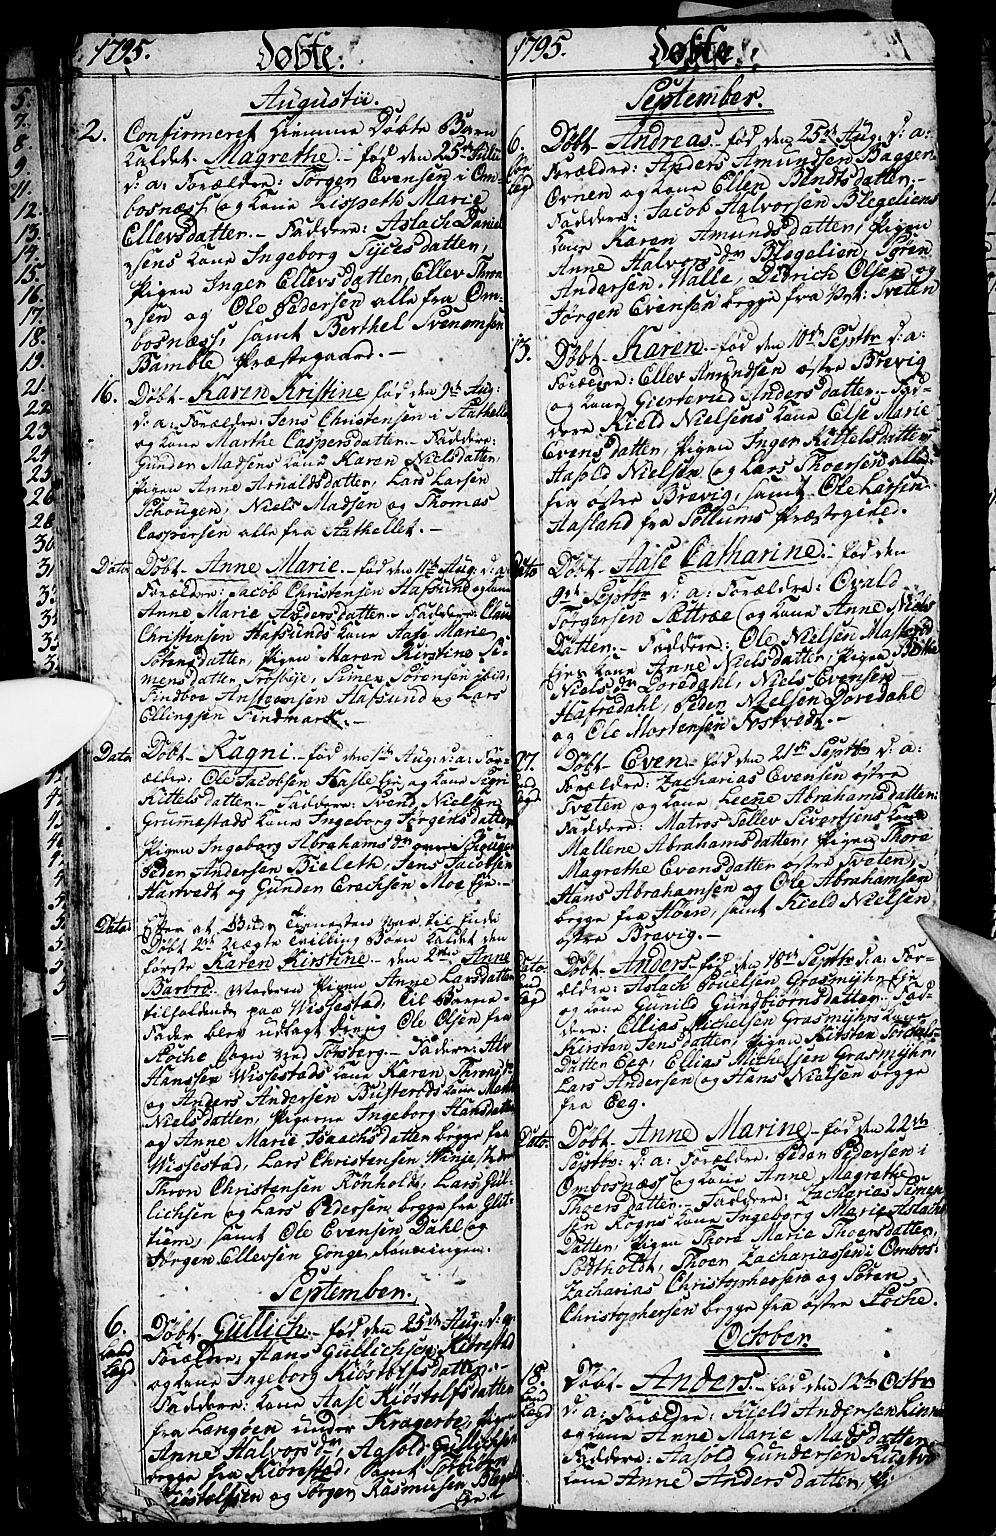 1795. Døbte.
Augustii.
2. Confirmeret Hiemme Døbte Barn
kaldet Magrethe. født den 25de Julii
d: a: Forældre: Jørgen Evensen i Om-
bosnæss og kone Lispeth Marie
Ellevsdatter. Faddere: Aslach Daniel-
sens kone Ingeborg
Pigen Inger Ellevsdatter, Ellev Thron-
sen og Ole Pedersen alle fra Om-
bosnæss, samt Berthel Svenomsen
Bamble Præstegaard.
16. Døbt Karen Kristine født den 9de Aug:
d: a: Forældre: Jens Christensen i Stathelle
og kone Marthe Caspersdatter. Faddere:
Gunder Madsens kone Karen Nielsdatter,
Pigen Anne Arnildsdatter, Lars Larsen
Schougen, Niels Madsen og Thomas
Caspersen alle fra Stathellet.
Dato Døbt Anne Marie. født den 11te Aug: d: a:
Forældre: Jacob Christensen Hafsund og kone
Anne Marie Andersdatter. Faddere: Claus
Christensen Hafsunds kone Aase Marie
datter, Pigen Maren Kirstine Si-
mensdatter, Trosbye, Simen Sørensen ibid,
Findboe Anstensen Hafsund og Lars
Ellingsen Findmark.
Dato Døbt Ragni. født den 1ste Aug: d: a: For-
ældre: Ole Jacobsen Hasle Eje og kone Sigri
Kittelsdatter. Faddere: Svend Nielsen
Grummestads kone Ingeborg Jørgensdatter
Pigen Ingeborg Abrahamsdtr øvre Schougen
Peder Andersen Bieleth, Jens Jacobsen
Hartvedt og Gunder Erichsen Moe Eje.
Dato Efter at Guds Tienesten var til Ende
Døbt 2de Uægte Tvilling Børn kaldet den
første Karen Kirstine. den 2den Anne
Barbro. Moderen Pigen Anne Larsdatter
tilholdende paa Wissestad. Til Barne-
Fader blev udlagt dreng Ole Olsen fra
Foche Sogn ved Tønsberg. Faddere: Alv
Hanssen Wissestads kone Karen
og Anders Andersen Busterøds kone
Nielsdatter, Pigerne Ingeborg Hansdatter
og Anne Marie Isaachsdatter begge fra
Wissestad, Lars Christensen Winje, Peder
Thron Christensen Rønholt, Lars Gul-
lichsen og Lars Pedersen begge fra Glit-
tiem, samt Ole Evensen Dahl og
Jørgen Ellevsen Gonge,
September.
6. Døbt Gullich. født den 25de Aug: d: a:
Forældre, Hans Gullichsen Kiørestad
og kone Ingeborg Kiøstolfsdatter.
Faddere: kone Aase Kiøstolfsdatter
fra Langøen under Kragerøe, Pigen
Anne Halvorsdtr, Aasold Gullichsen
begge fra Kiørestad, samt Torbiørn
Kiøstolfsen og Jørgen Rasmusen
1795. Døbte.
September.
6. Døbt Andreas. født den 25de Aug: d: a:
Forældre: Anders Amundsen Baggen-
Ovnen og kone Ellen Bendtsdatter.
Faddere: Jacob Halvorsen Blegeliens
kone Karen Amundsdatter, Pigen
Anne Halvorsdtr Blegelien, Søren
Andersen Walle, Didrich Olsen og
Jørgen Evensen begge fra Sveten
13. Døbt Karen. født den 10de Septbr d: a:
Forældre: Ellev Amundsen østre Brevig
og kone Gierterud Andersdatter. Fad-
dere Kield Nielsens kone Else Marie
Evensdatter, Pigen Inger Kittelsdatter
Aasold Nielsen og Lars Thoersen alle
fra østre Brevig, samt Ole Larsen
Aasland fra Sollums Præstegield.
Dato Døbt Aase Catharine. født den
9de Septbr d: a: Forældre: Ovald
Torgersen Sættræe og kone Anne Niels
Datter. Faddere: Ole Nielsen
Ejes kone Anne Nielsdatter, Pigen Berthe
Nielsdtr Doredahl, Niels Evensen
Hafredahl, Peder Nielsen Doredahl
og Ole Mortensen Nostvedt.
27. Døbt Even. født den 21de Septbr d: a:
Forældre: Zacharias Evensen østre
Sveten og kone Leene Abrahamsdatter.
Faddere: Matros Tellev Sivertsens kone
Mallene Abrahamsdatter, Pigen Thora
Magrethe Evensdatter østre Sveten,
Hans Abrahamsen og Ole Abrahamsen
begge fra Høen, samt Kield Nielsen
østre Brevig.
Dato Døbt Anders. født den 18de Septbr d: a: For-
ældre: Aslach Povelsen Grasmyhr Eje
og kone Gunild Gundbiørnsdatter. Fad-
dere: Ellias Michelsen Grasmyhrs kone
Kirsten Jensdatter, Pigen Kirsten
Datter Eeg, Ellias Michelsen Grasmyhr,
Lars Andersen og Hans Nielsen begge
fra Eeg.
Dato Døbt Anne Marine. født den 22de
Septbr: d: a: Forældre: Peder Pedersen i
Ombosnæss og kone Anne Magrethe
Thoersdatter. Faddere: Zacharias Simen-
sen Rogns kone Ingeborg Marie Aslachs
Datter, Pigen Thore Marie Thoersdatter,
Thoer Zachariassen i Ombos:
Zacharias Christophersen og Søren
Christophersen begge fra østre Foche.
October.
18. Døbt Anders. født den 12te Octbr
d: a: Forældre: Kield Andersen
og kone Anne Marie Madsdatter.
Faddere: Aasold Gundersen
kone Anne Andersdatter,